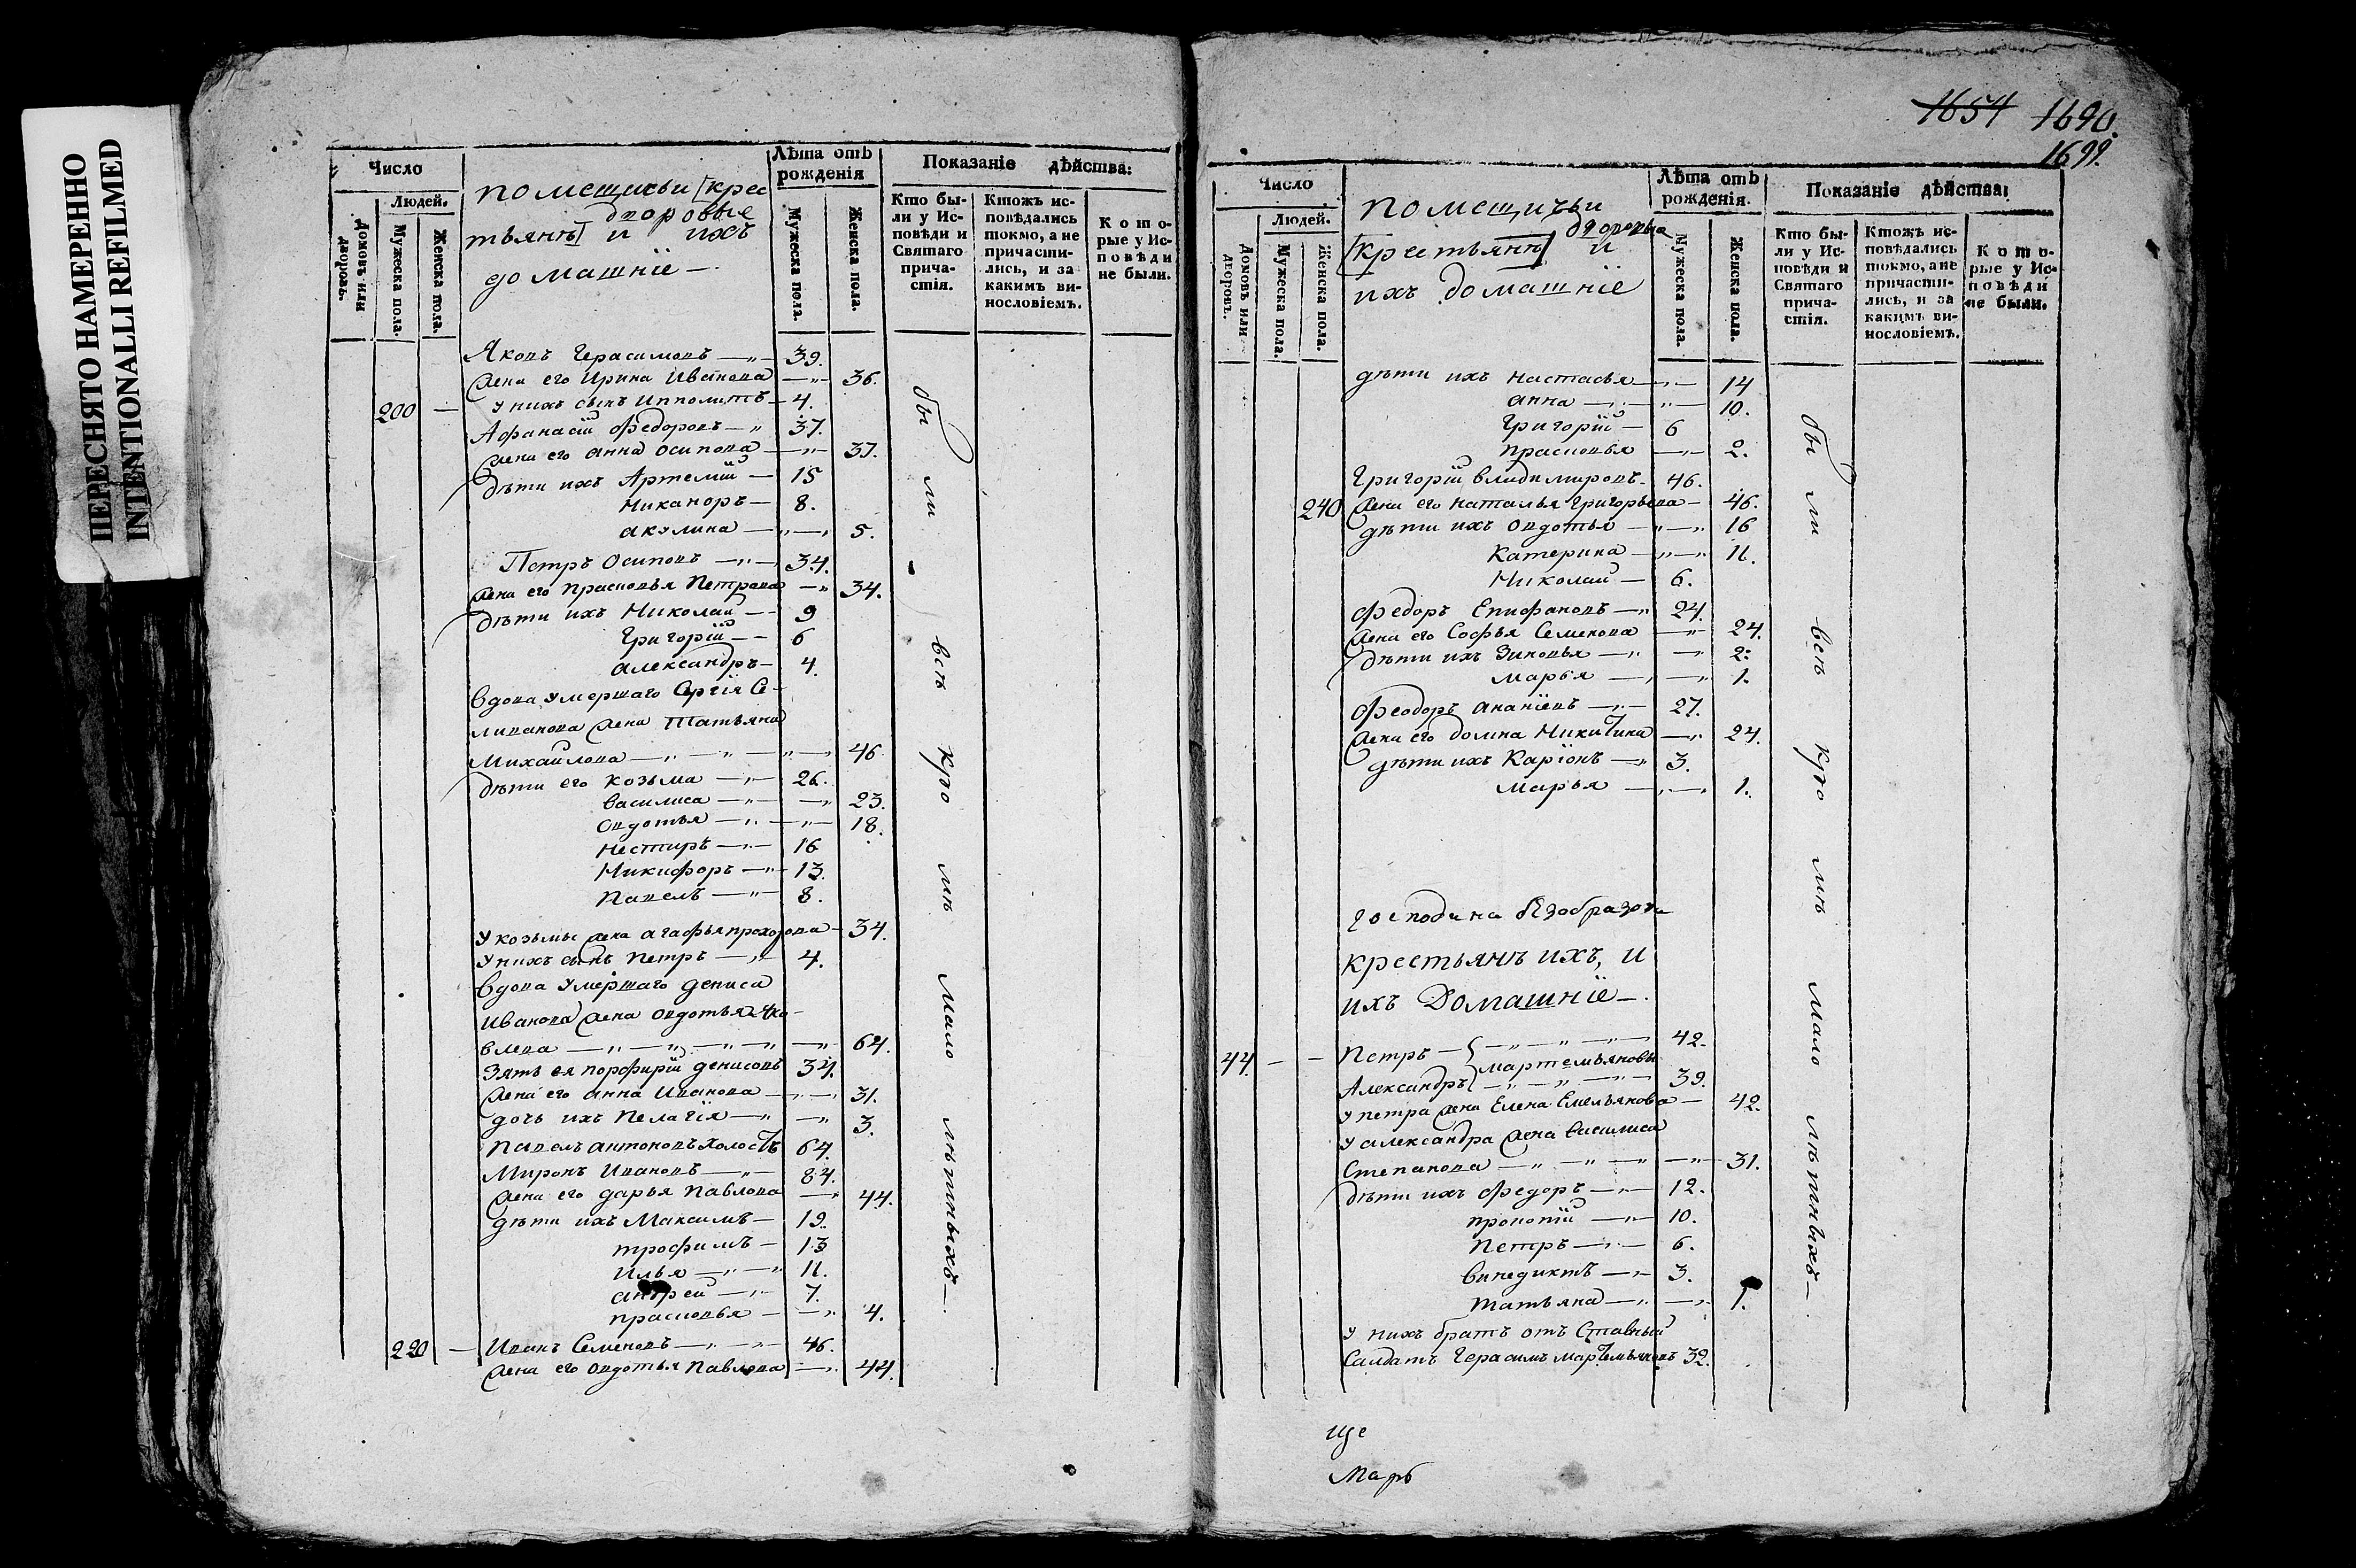 ПЕРЕСНЯТО НАМЕРЕННО
INTENTIONALLI REFILMED
Число
Людей.
Домовъ или дворовъ.
Мужеска пола.
Женска пола.
помещичьи [крес
дворовые
тьянѣ] и ихъ
домашніе —
Лѣта отъ рожденія
Мужеска пола.
Женска пола.
Показаніе дѣйства:
Кто бы-
ли у Ис-
повѣди и
Святаго
прича-
стія.
Ктожъ ис-
повѣдались
токмо, а не
причасти-
лись, и за
какимъ ви-
нословіемъ.
Кото-
рые у Ис-
повѣди
не были.
Яковъ Герасимовъ — 39.
жена его Ирина Иванова — 36.
200 — у нихъ сынъ Ипполитъ — 4.
Афанасій Федоровъ — 37.
жена его анна осипова — 37.
дѣти ихъ Артемій — 15
Никаноръ — 8.
акулина — 5.
Петръ Осиповъ — 34.
жена его прасковья Петрова — 34.
дѣти ихъ Николай — 9
Григорій — 6
александръ — 4.
вдова умершаго Сергія Се-
ливанова жена Татьяна
Михайлова — 46
дѣти его козьма — 26.
василиса — 23.
овдотья — 18.
нестиръ — 16
Никифоръ — 13.
павелъ — 8.
у козьмы жена агафья прохорова — 34.
у нихъ сынъ петръ — 4.
вдова умершаго дениса
иванова жена овдотья яко-
влева — 64.
зять ея порфирій денисовъ 34.
жена его анна Иванова — 31.
дочь ихъ пелагія — 3.
павелъ антоновъ холостъ 64.
Миронъ Ивановъ — 84.
жена его дарья павлова — 44.
дѣти ихъ Максимъ — 19.
трофимъ — 13
илья — 11.
андрей — 7.
прасковья — 4.
220 — Иванъ Семеновъ — 46.
жена его овдотья павлова — 44.
были всѣ кромѣ малолѣтныхъ —
1654 1690.
1699.
Число
Людей.
Домовъ или дворовъ.
Мужеска пола.
Женска пола.
помещичьи
дворовыя
[крестьянѣ] и
ихъ домашніе
Лѣта отъ рожденія.
Мужеска пола.
Женска пола.
Показаніе дѣйства:
Кто бы-
ли у Ис-
повѣди и
Святаго
прича-
стія.
Ктожъ ис-
повѣдались
токмо, а не
причасти-
лись, и за
какимъ ви-
нословіемъ.
Кото-
рые у Ис-
повѣди
не были.
дѣти ихъ настасья — 14
анна — 10.
Григорій — 6
прасковья — 2.
Григорій владимировъ — 46.
240 жена его наталья Григорьева — 46.
дѣти ихъ овдотья — 16
катерина — 11.
Николай — 6.
Федоръ Епифановъ — 24.
жена его Софья Семенова — 24.
дѣти ихъ зиновья — 2:
марья — 1.
Феодоръ ананіевъ — 27.
жена его домна Никитина — 24.
дѣти ихъ Каріонъ — 3.
марья — 1.
господина безобразова
крестьянѣ ихъ, и
ихъ Домашніе —
44. — — Петръ — 42.
мартемьяновы
Александръ — 39.
у петра жена Елена Емельянова — 42.
у александра жена василиса
степанова — 31.
дѣти ихъ федоръ — 12.
прокопій — 10.
петръ — 6.
винедиктъ — 3.
татьяна — 1.
у нихъ братъ отъ ставный
Салдатъ Герасимъ мартемьяновъ 32.
были всѣ кромѣ малолѣтныхъ —
ще
Марь